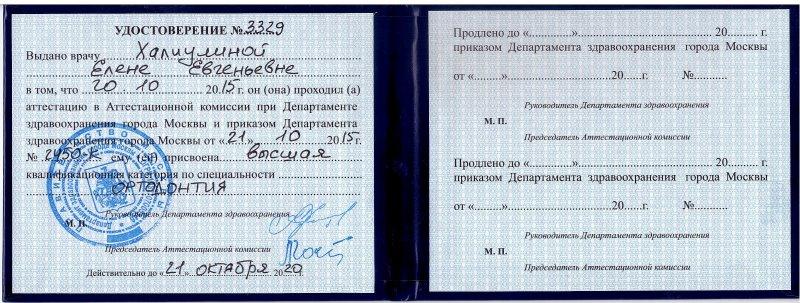 УДОСТОВЕРЕНИЕ № 3329
Выдано врачу Халиулиной
Елене Евгеньевне
в том, что 20.10 2015 г. он (она) проходил (а)
аттестацию в Аттестационной комиссии при Департаменте
здравоохранения города Москвы и приказом Департамента
здравоохранения города Москвы от «21» 10 2015г.
№ 2450-к ему (ей) присвоена высшая
квалификационная категория по специальности
ортодонтия
Руководитель Департамента здравоохранения
М. П.
Председатель Аттестационной комиссии
Действительно до «21» октября 2020
Продлено до «............»................................ 20...........г.
приказом Департамента здравоохранения города Москвы
от «........»..........................20......г. №..........
Руководитель Департамента здравоохранения
М. П.
Председатель Аттестационной комиссии
Продлено до «............»................................ 20...........г.
приказом Департамента здравоохранения города Москвы
от «........»..........................20......г. №..........
Руководитель Департамента здравоохранения
М. П.
Председатель Аттестационной комиссии